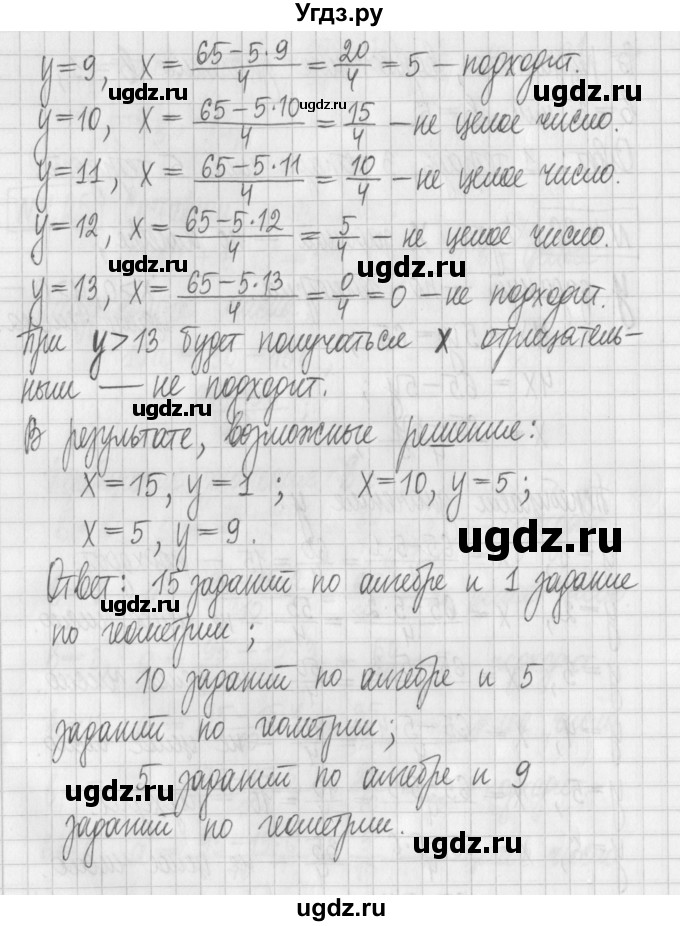 Угдз.ру
y=9, x = (65-5·9)/4 = 20/4 = 5 – подходит.
ugdz.ru
ugdz.ru
ugdz.ru
y=10, x = (65-5·10)/4 = 15/4 – не целое число.
y=11, x = (65-5·11)/4 = 10/4 – не целое число.
ugdz.ru
y=12, x = (65-5·12)/4 = 5/4 – не целое число.
ugdz.ru
y=13, x = (65-5·13)/4 = 0/4 = 0 – не подходит.
При y>13 будет получаться x отрицатель-
ным — не подходит.
ugdz.ru
ugdz.ru
В результате, возможные решение:
x=15, y=1 ; x=10, y=5;
x=5, y=9.
ugdz.ru
Ответ: 15 заданий по алгебре и 1 задание
ugdz.ru
по геометрии;
10 заданий по алгебре и 5
заданий по геометрии;
5 заданий по алгебре и 9
ugdz.ru
заданий по геометрии.
ugdz.ru
ugdz.ru